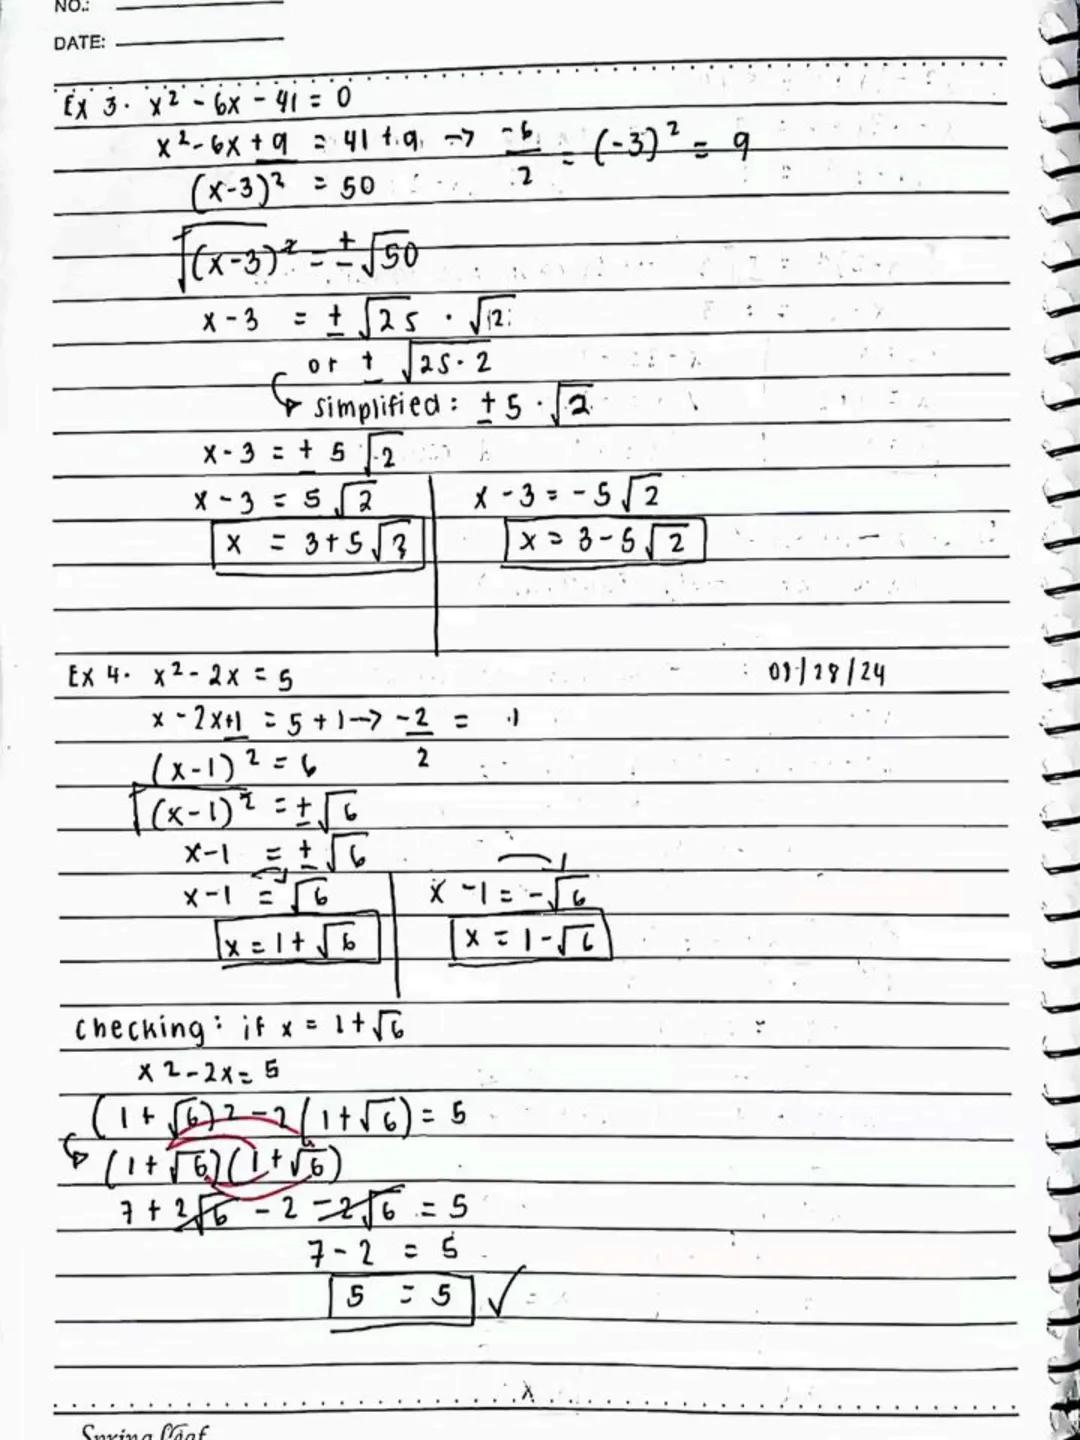 NO.:
DATE:
Ex 3. x² - 6x - 41 = 0
x² - 6x + 9 = 41 + 9 → -6/2 = (-3)² = 9
(x-3)² = 50
√(x-3)² = ± √50
x - 3 = ± √25 · √2
or ± √25·2
simplified: ± 5 · √2
x - 3 = ± 5 √2
x - 3 = 5 √2 x - 3 = - 5 √2
x = 3 + 5 √2 x = 3 - 5 √2
Ex 4. x² - 2x = 5 /28/24
x - 2x+1 = 5 + 1 → -2/2 = 1
(x-1)² = 6
√(x-1)² = ± √6
x-1 = ± √6
x-1 = √6 x - 1 = - √6
x = 1 + √6 x = 1 - √6
checking: if x = 1 + √6
x2 - 2x = 5
(1 + √6)2 - 2(1 + √6) = 5
(1 + √6)(1 + √6)
7 + 2√6 - 2 - 2√6 = 5
7 - 2 = 5
5 = 5 ✓
Spring Leaf